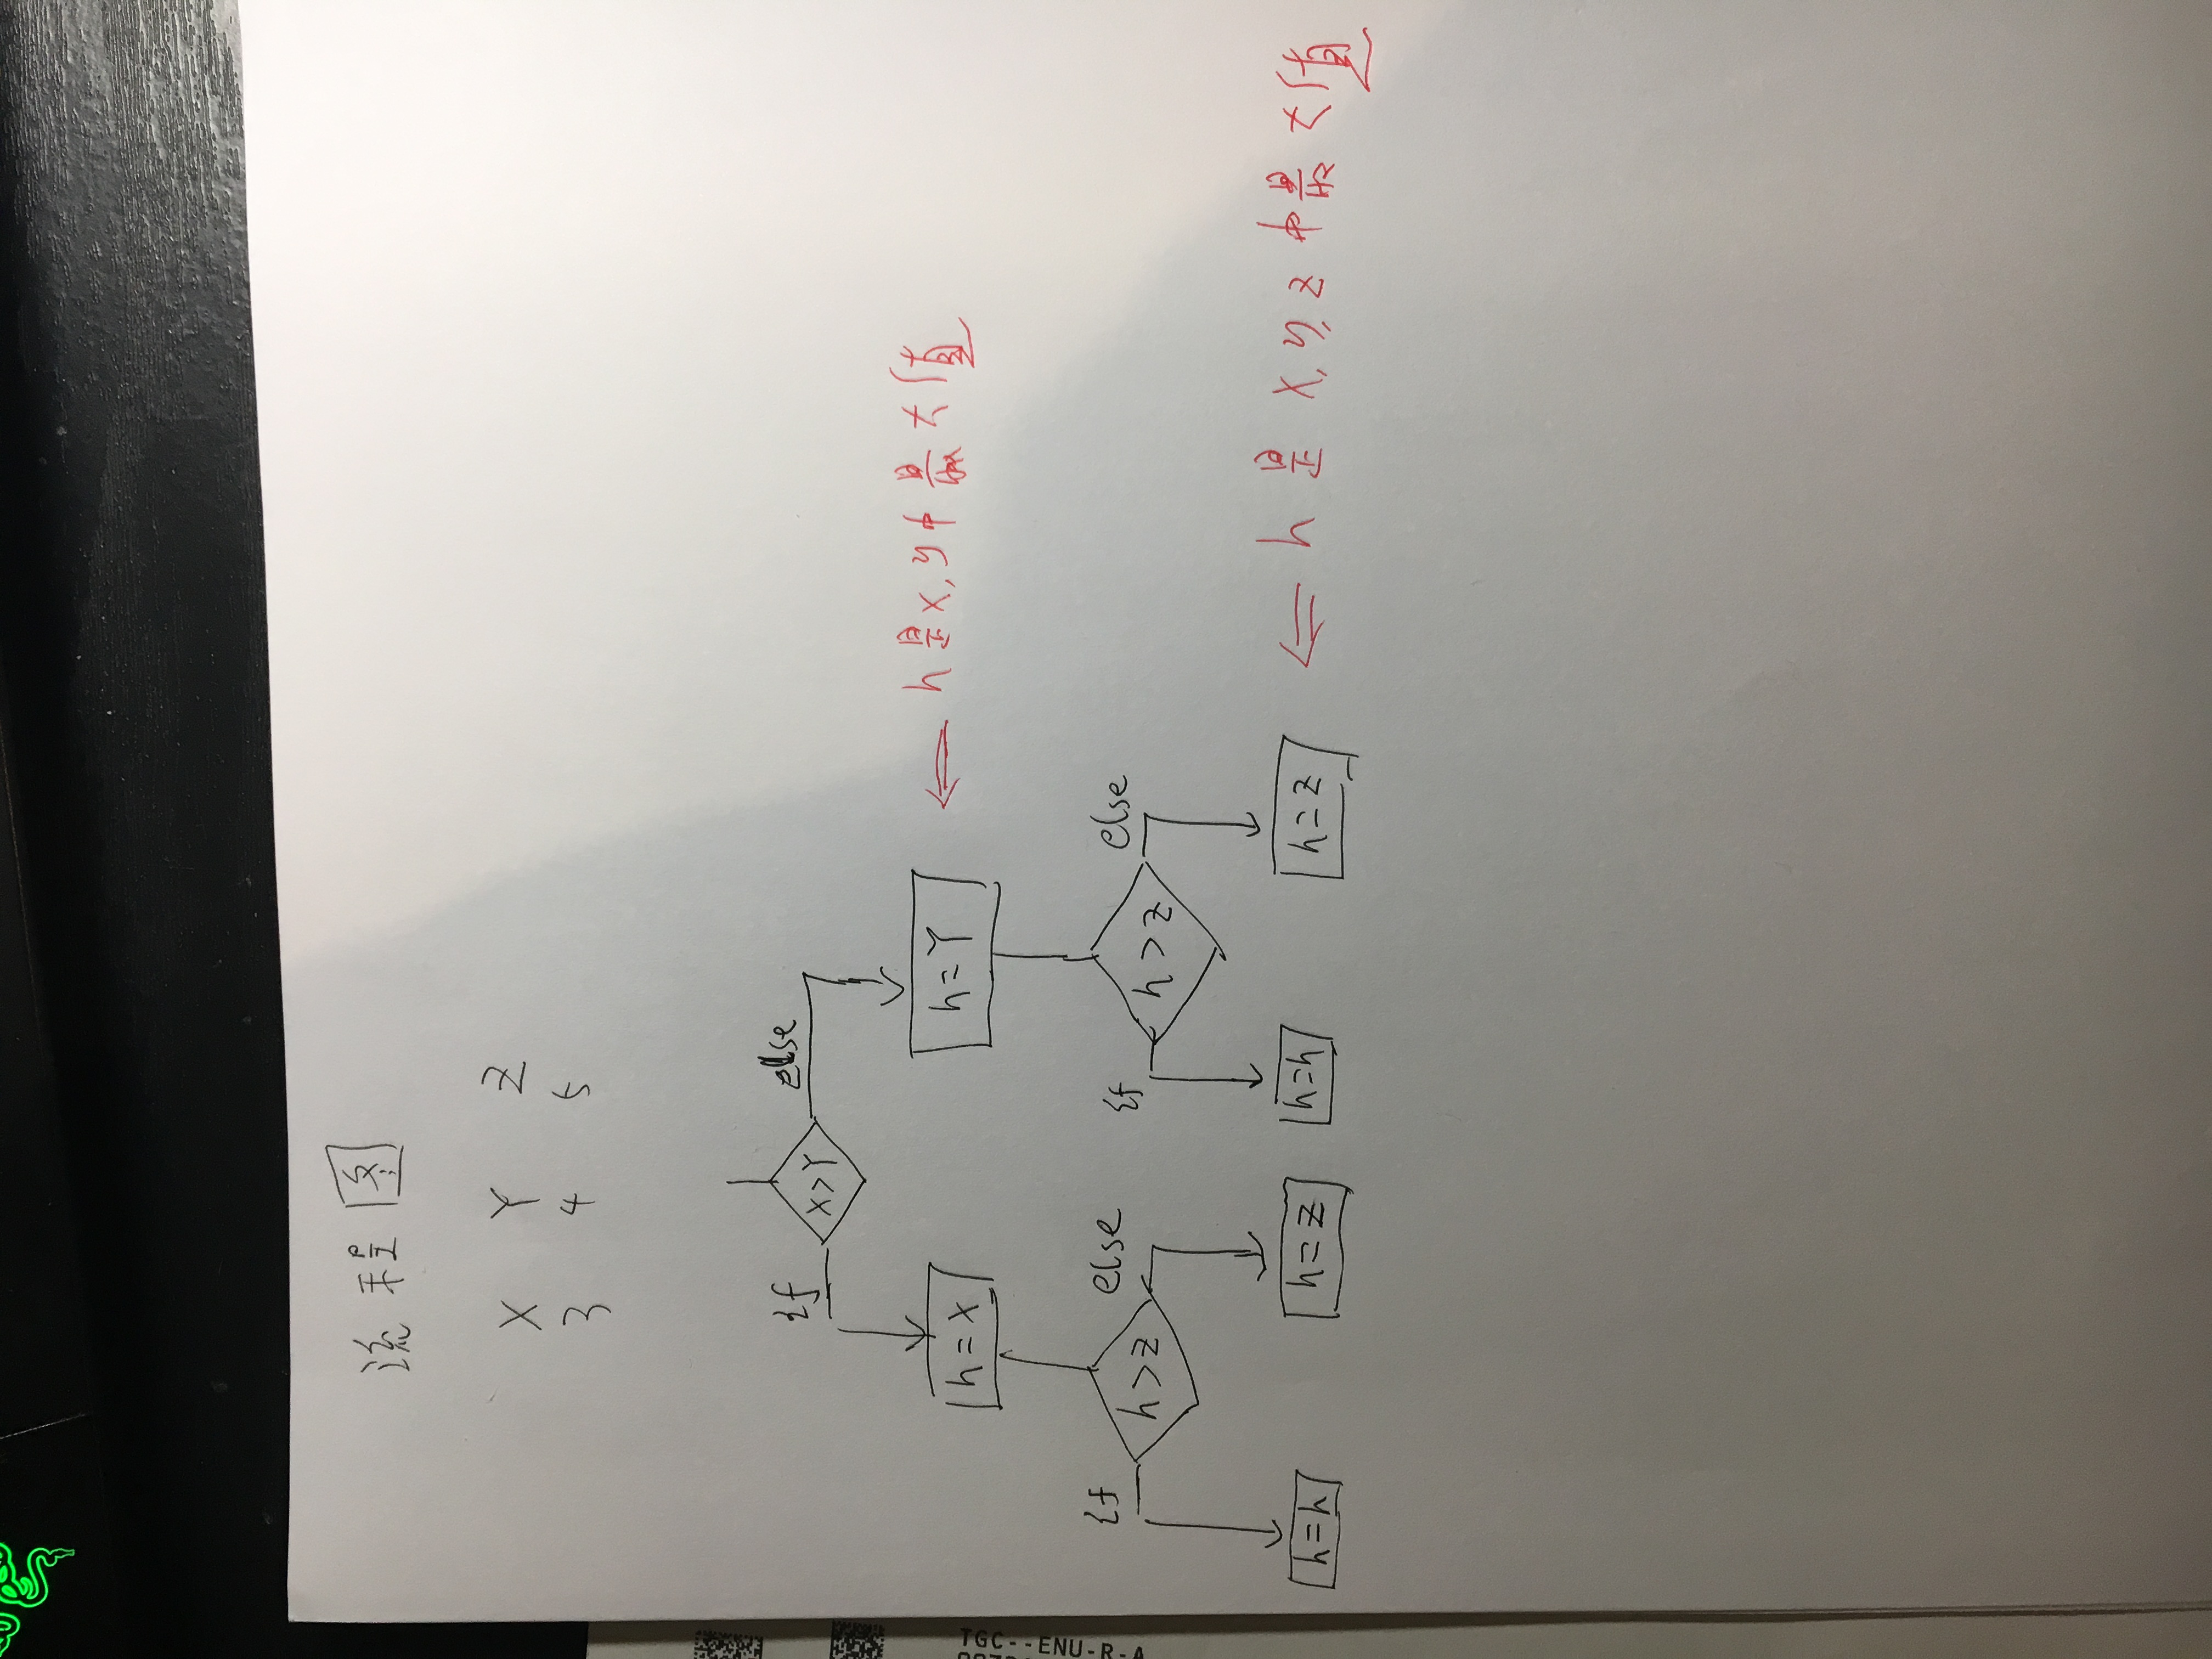 流程图
X Y Z
3 4 5
if X>Y else
h=X h=Y ⇐ h是x,y中最大值
if h>z else if h>z else
h=h h=z h=h h=z ⇐ h是 x,y,z 中最大值
TGC--ENU-R-A